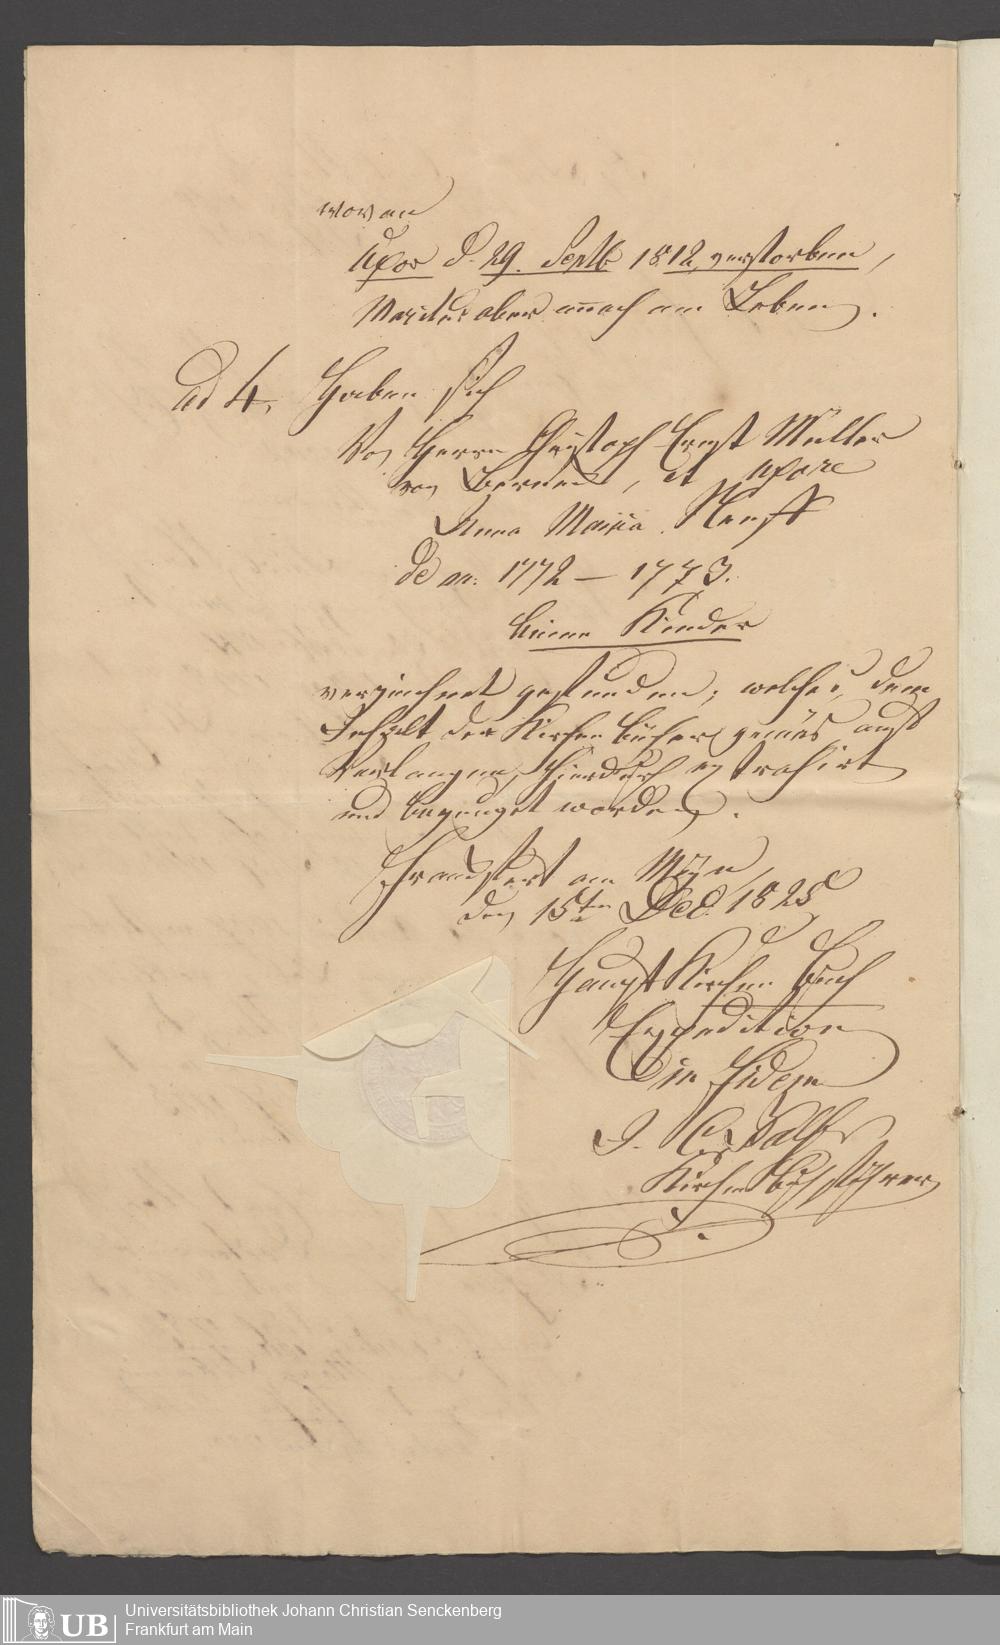 wovon
Uxor d. 29. Septb 1812, verstorben,
Maritus aber annoch am Leben.
ad 4, Haben sich
Von Herrn Christoph Ernst Müller
von Bernus, et uxore
Anna Maria
de an: 1772 — 1773.
keine Kinder
verzeichnet gefunden; welches, dem
Inhalt der Kirchen Bücher gemäs auf
Verlangen, hierdurch extrahirt
und bezeuget worden.
Franckfurt am Mayn,
den 15ten Dec. 1825
Haupt Kirchen Buch
Expedition
in fidem
J. C.
Kirchen Buchführer
UB
Universitätsbibliothek Johann Christian Senckenberg
Frankfurt am Main